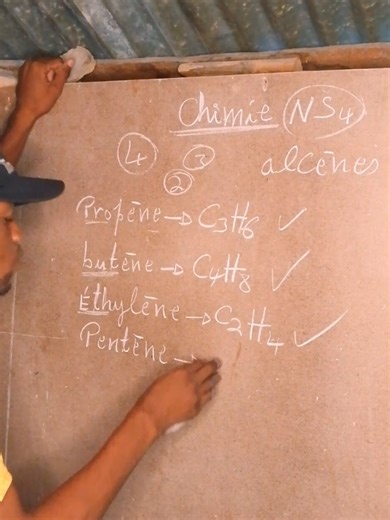 Chimie NS4
4 3 alcēnes
2
Propēne → C3H6 ✓
butēne → C4H8 ✓
Éthylēne → C2H4 ✓
Pentēne →